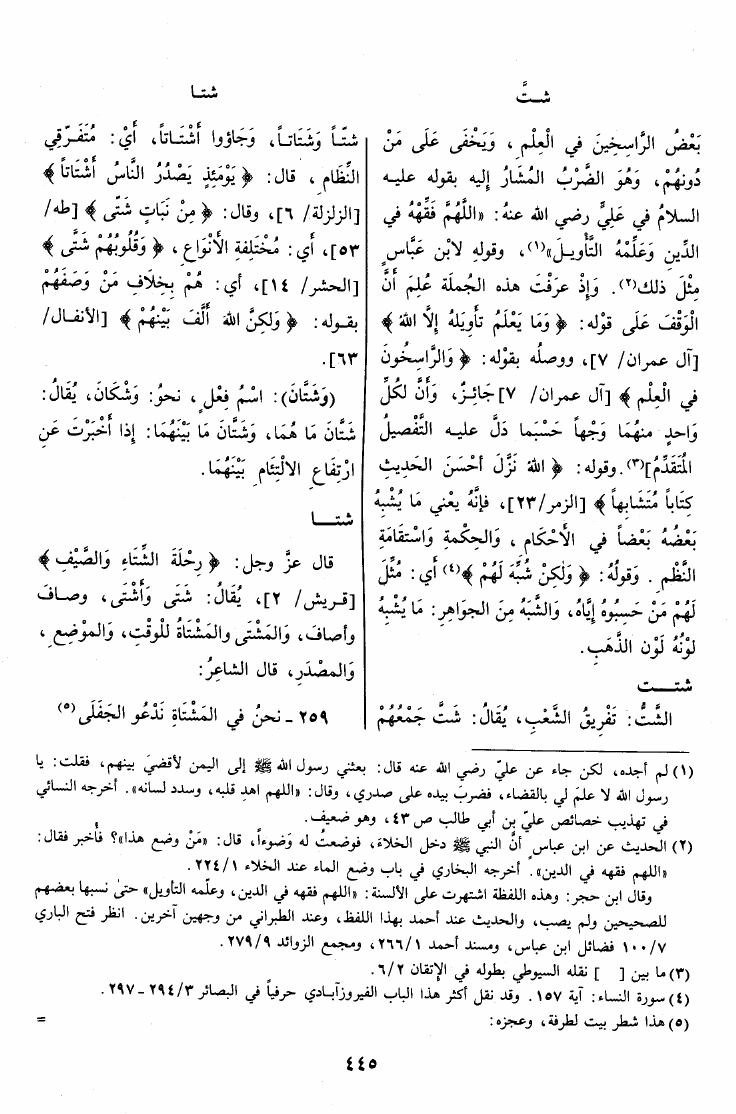 شـتَّ
شتـا
بَعْضُ الرَّاسِخِينَ في الْعِلْمِ، وَيَخْفَى عَلَى مَنْ
دُونَهُمْ، وَهُوَ الضَّرْبُ المُشَارُ إليه بقوله عليـه
السلامُ في عَلِيٍّ رضي الله عنهُ: «اللَّهُمَّ فَقِّهْهُ في
الدِّينِ وَعَلِّمْهُ التَّأْوِيـلَ»(١)، وقولِهِ لابْنِ عَبَّاسٍ
مِثْلَ ذلك(٢). وَإِذْ عرَفْتَ هذه الجُملَة عُلِمَ أَنَّ
الْوَقْفَ عَلَى قوْلِه: ﴿ وَمَا يَعْلَمُ تَأْوِيلَهُ إِلَّا اللهُ ﴾
[آل عمران/ ٧]، ووصلُه بقوْلِهِ: ﴿ وَالرَّاسِخُونَ
في الْعِلْمِ ﴾ [آل عمران/ ٧] جَائِـزٌ، وَأَنَّ لكُلِّ
وَاحِدٍ منهُمَا وَجْهاً حَسْبَمَا دَلَّ عليـه التَّفْصِيلُ
المُتَقَدِّمُ](٣). وقوله: ﴿ اللهُ نَزَّلَ أَحْسَنَ الحَدِيثِ
كِتَاباً مُتَشَابِهاً ﴾ [الزمر/٢٣]، فإِنَّهُ يعْني مَا يُشْبِهُ
بَعْضُهُ بَعْضاً في الأَحْكامِ، وَالحِكْمَةِ وَاسْتِقَامَةِ
النَّظْمِ. وَقولُهُ: ﴿ وَلَكِنْ شُبِّهَ لَهُمْ ﴾(٤) أي: مُثِّلَ
لَهُمْ مَنْ حَسِبُوهُ إِيَّاهُ، وَالشَّبَهُ مِنَ الجواهِرِ: مَا يُشْبِهُ
لوْنُهُ لَوْن الذَّهَبِ.
شتــــت
الشَّتُّ: تَفْرِيقُ الشَّعْبِ، يُقَالُ: شَتَّ جَمْعُهُمْ
شتّاً وَشَتَاتـاً، وَجَاؤوا أَشْتَـاتاً، أَيْ: مُتَفَـرِّقِي
النِّظَامِ، قال: ﴿ يَوْمَئِذٍ يَصْدُرُ النَّاسُ أَشْتَاتاً ﴾
[الزلزلة/ ٦]، وقال: ﴿ مِنْ نَبَاتٍ شَتَّى ﴾ [طه/
٥٣]، أي: مُخْتَلِفَةِ الأنْوَاعِ، ﴿ وَقُلُوبُهُمْ شَتَّى ﴾
[الحشر/ ١٤]، أي: هُمْ بِخِلَافِ مَنْ وَصَفَهُمْ
بقـوله: ﴿ وَلَكِنَّ اللهَ أَلَّفَ بَيْنَهُمْ ﴾ [الأنفـال/
٦٣].
(وَشَتَّانَ): اسْمُ فعْلٍ، نحوُ: وَشْكَانَ، يُقَالُ:
شَتَّانَ مَا هُمَا، وَشَتَّانَ مَا بَيْنَهُمَا: إذا أَخْبَرْتَ عَنِ
ارْتِفَاعِ الالْتِئَامِ بَيْنَهُمَا.
شتـــا
قال عزَّ وجل: ﴿ رِحْلَةَ الشِّتَاءِ وَالصَّيْفِ ﴾
[قريش/ ٢]، يُقَالُ: شَتَى وَأَشْتَى، وصـافَ
وأصافَ، وَالمَشْتَى والمَشْتَاةُ للْوقْتِ، وَالموْضِعِ،
وَالمصْدَرِ، قال الشاعرُ:
٢٥٩ ـ نحنُ في المَشْتَاةِ نَدْعُو الجَفَلَى(٥)
(١) لم أجده، لكن جاء عن عليّ رضي الله عنه قال: بعثني رسول الله ﷺ إلى اليمن لأقضيَ بينهم، فقلت: يا
رسول الله لا علمَ لي بالقضاء، فضربَ بيده على صدري، وقال: «اللهم اهدِ قلبه، وسدد لسانه». أخرجه النسائي
في تهذيب خصائص عليّ بن أبي طالب ص ٤٣، وهو ضعيف.
(٢) الحديث عن ابن عباس أنَّ النبي ﷺ دخل الخلاءَ، فوضعتُ له وَضوءاً، قال: «مَنْ وضع هذا»؟ فأخبر فقال:
«اللهم فقهه في الدين». أخرجه البخاري في باب وضع الماء عند الخلاء ٢٢٤/١.
وقال ابن حجر: وهذه اللفظة اشتهرت على الألسنة: «اللهم فقهه في الدين، وعلّمه التأويل» حتىٰ نسبها بعضهم
للصحيحين ولم يصب، والحديث عند أحمد بهذا اللفظ، وعند الطبراني من وجهين آخرين. انظر فتح الباري
١٠٠/٧ فضائل ابن عباس، ومسند أحمد ٢٦٦/١، ومجمع الزوائد ٢٧٩/٩.
(٣) ما بين [ ] نقله السيوطي بطوله في الإتقان ٦/٢.
(٤) سورة النساء: آية ١٥٧. وقد نقل أكثر هذا الباب الفيروزآبـادي حرفياً في البصائر ٢٩٤/٣ ـ ٢٩٧.
(٥) هذا شطر بيت لطرفة، وعجزه:
=
٤٤٥